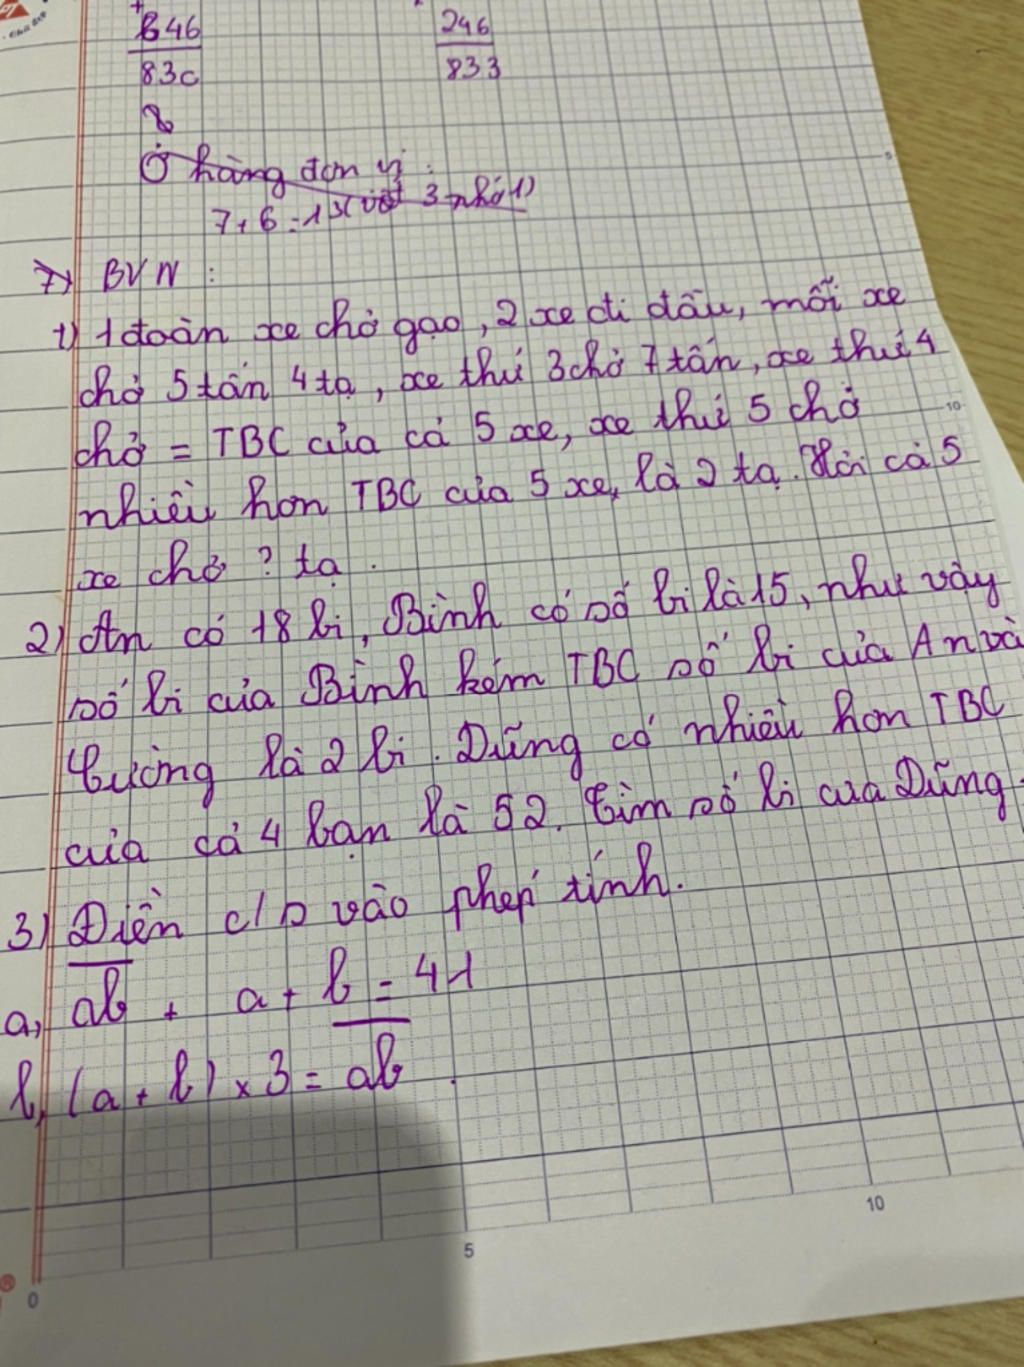 +
646 246
83c 833
8
Ở hàng đơn vị :
7+6=13 (viết 3 nhớ 1)
7) BVN :
1) 1 đoàn xe chở gạo, 2 xe đi đầu, mỗi xe
chở 5 tấn 4 tạ, xe thứ 3 chở 7 tấn, xe thứ 4
chở = TBC của cả 5 xe, xe thứ 5 chở
nhiều hơn TBC của 5 xe, là 2 tạ. Hỏi cả 5
xe chở ? tạ.
2) An có 18 bi, Bình có số bi là 15, như vậy
số bi của Bình kém TBC số bi của An và
Cường là 2 bi. Dũng có nhiều hơn TBC
của cả 4 bạn là 52. Tìm số bi của Dũng.
3) Điền c/s vào phép tính.
a, ab + a + b = 41
b, (a + b) x 3 = ab
5
10
0 5 10